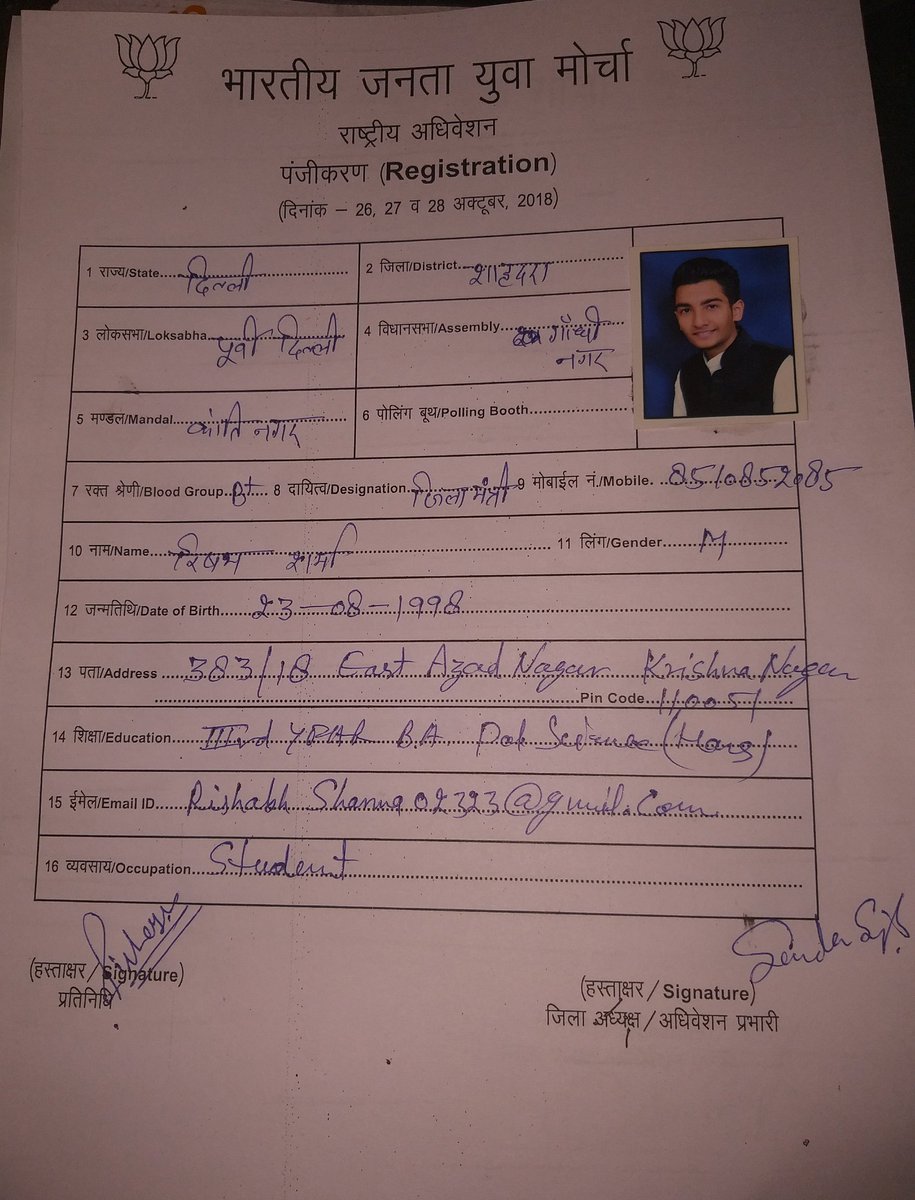 भारतीय जनता युवा मोर्चा
राष्ट्रीय अधिवेशन
पंजीकरण (Registration)
(दिनांक – 26, 27 व 28 अक्टूबर, 2018)
1 राज्य/State दिल्ली 2 जिला/District शाहदरा
3 लोकसभा/Loksabha पूर्वी दिल्ली 4 विधानसभा/Assembly गाँधी
नगर
5 मण्डल/Mandal क्रांति नगर 6 पोलिंग बूथ/Polling Booth
7 रक्त श्रेणी/Blood Group B+ 8 दायित्व/Designation जिला मंत्री 9 मोबाईल नं./Mobile.
10 नाम/Name रिषभ शर्मा 11 लिंग/Gender M
12 जन्मतिथि/Date of Birth 23-08-1998
13 पता/Address 383/18 East Azad Nagar Krishna Nagar
Pin Code 110051
14 शिक्षा/Education IIIrd YEAR B.A Pol Science (Hons)
15 ईमेल/Email ID Rishabh Sharma02323@gmail.com
16 व्यवसाय/Occupation Student
(हस्ताक्षर / Signature)
प्रतिनिधि
(हस्ताक्षर / Signature)
जिला अध्यक्ष / अधिवेशन प्रभारी